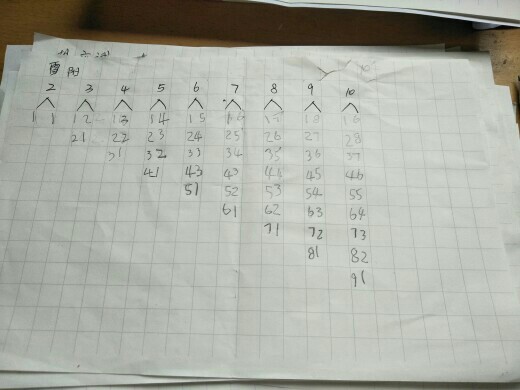 酉阳
2 3 4 5 6 7 8 9 10
1 1 12 13 14 15 16 17 18
21 22 23 24 25 26 27 28
31 32 33 34 35 36 37
41 43 43 44 45 46
51 52 53 54 55
61 62 63 64
71 72 73
81 82
91